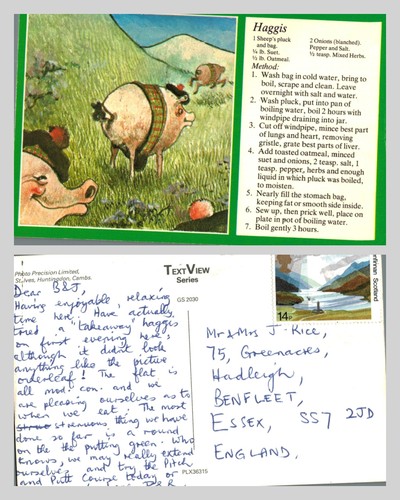 Haggis
1 Sheep's pluck
and bag.
¼ lb. Suet.
½ lb. Oatmeal.
2 Onions (blanched).
Pepper and Salt.
½ teasp. Mixed Herbs.
Method:
1. Wash bag in cold water, bring to
boil, scrape and clean. Leave
overnight with salt and water.
2. Wash pluck, put into pan of
boiling water, boil 2 hours with
windpipe draining into jar.
3. Cut off windpipe, mince best part
of lungs and heart, removing
gristle, grate best parts of liver.
4. Add toasted oatmeal, minced
suet and onions, 2 teasp. salt, 1
teasp. pepper, herbs and enough
liquid in which pluck was boiled,
to moisten.
5. Nearly fill the stomach bag,
keeping fat or smooth side inside.
6. Sew up, then prick well, place on
plate in pot of boiling water.
7. Boil gently 3 hours.
Photo Precision Limited,
St. Ives, Huntingdon, Cambs.
TEXTVIEW
Series
GS 2030
PLX38315
Dear B&J,
Having enjoyable, relaxing
time here. Have actually
tried a "takeaway" haggis
on first evening here,
although it didn't look
anything like the picture
orderleaf! The flat is
all mod. con. and we
are pleasing ourselves as to
when we eat. The most
strenuous thing we have
done so far is a round
on the the putting green. Who
knows, we may really extend
ourselves and try the Pitch
and Putt Course today or
14P
finnan Scotland
Mr & Mrs J. Rice,
75, Greenacres,
Hadleigh,
BENFLEET,
ESSEX, SS7 2JD
ENGLAND,